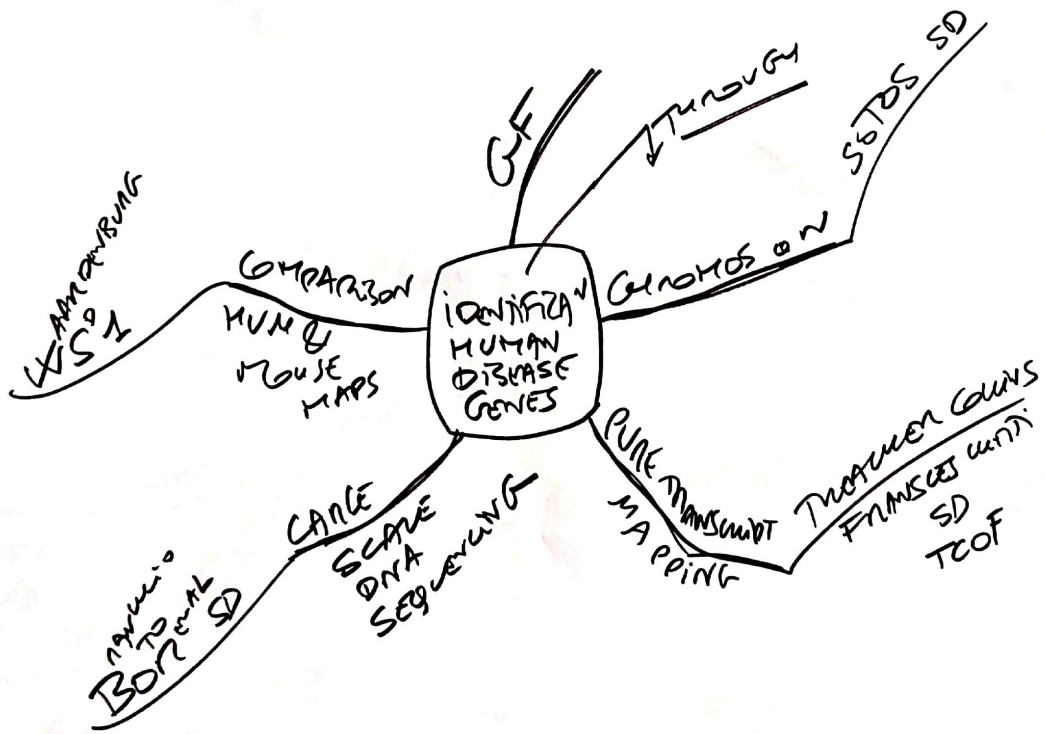 IDENTIFIZA N
HUMAN
DISEASE
GENES
CF
↓ THROUGH
CHROMOS
SOTOS SD
PURE TRANSCRIPT
MAPPING
TREACHER COLLINS
FRANSCES
SD
TCOF
LARGE
SCALE
DNA
SEQUENCING
TO
BOR SD
COMPARISON
HUM &
MOUSE
MAPS
WAARDENBURG
WS 1